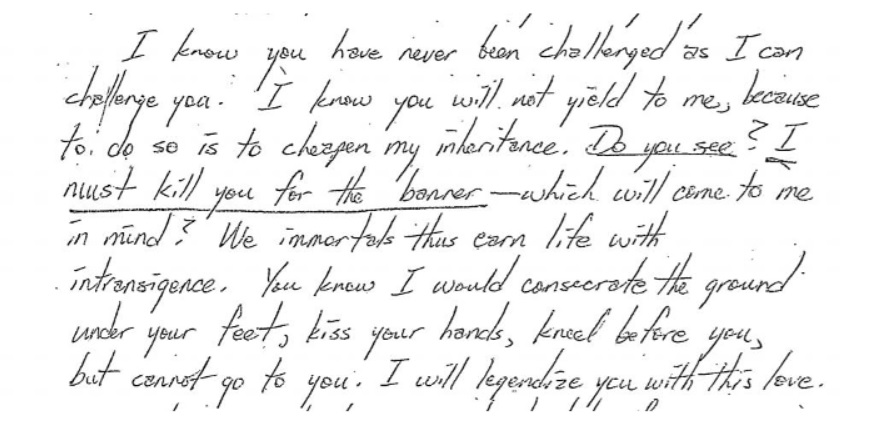 I know you have never been challenged as I can
challenge you. I know you will not yield to me, because
to do so is to cheapen my inheritance. Do you see? I
must kill you for the banner—which will come to me
in mind? We immortals thus earn life with
intransigence. You know I would consecrate the ground
under your feet, kiss your hands, kneel before you,
but cannot go to you. I will legendize you with this love.